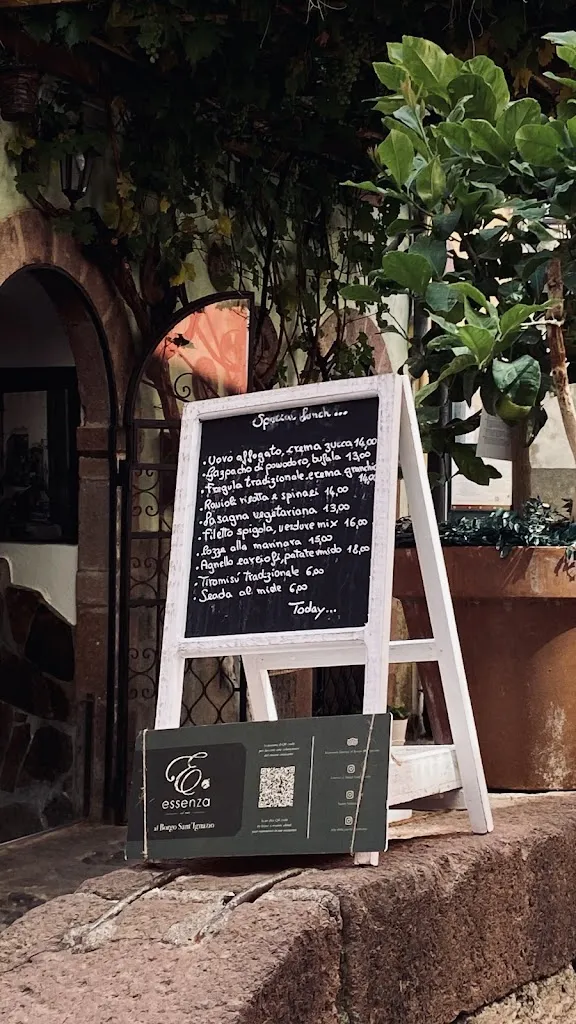 Special lunch...
• Uovo affogato, crema zucca 14,00
• Gazpacho di pomodoro, bufala 13,00
• Fregula tradizionale, crema granchio
14,00
• Ravioli ricotta e spinaci 14,00
• Lasagna vegetariana 13,00
• Filetto spigola, verdure mix 16,00
• Cozze alla marinara 15,00
• Agnello carciofi, patate mirto 18,00
• Tiramisù tradizionale 6,00
• Seada al miele 6,00
Today...
essenza
al Borgo Sant'Ignazio